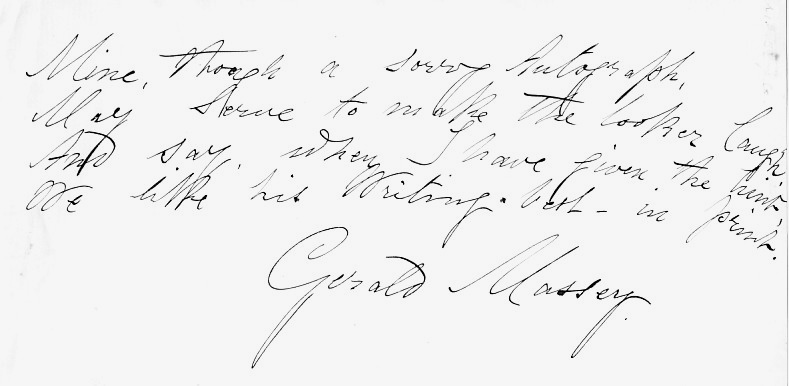 Mine, though a sorry Autograph,
May serve to make the looker laugh,
And say, when I have given the hint,
We like his Writing best – in print.
Gerald Massey.